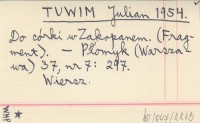 TUWIM Julian 1954.
Do córki w Zakopanem. (Frag-
ment). – Płomyk (Warsza-
wa) 37, nr 7: 297.
Wiersz.